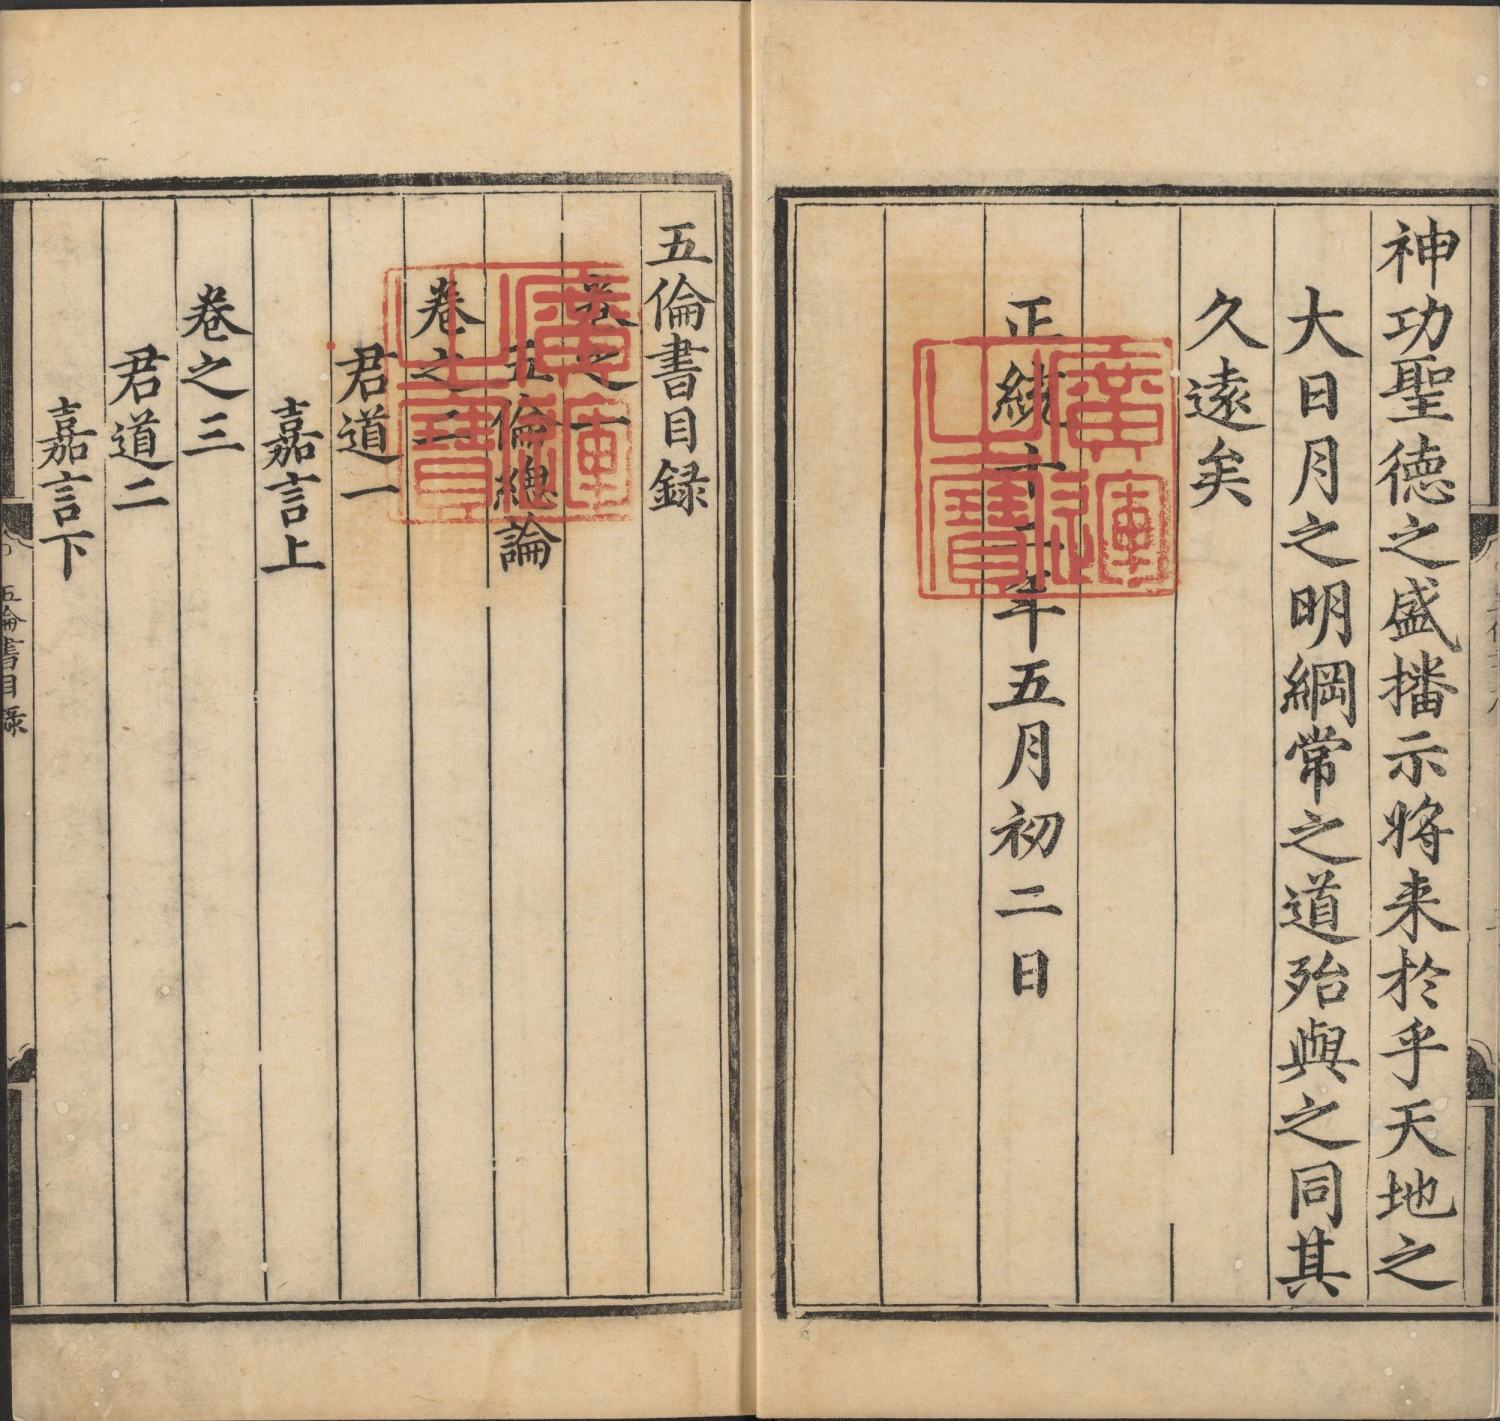 神功聖德之盛播示將来於乎天地之
大日月之明綱常之道殆與之同其
久遠矣
正統十二年五月初二日
廣運之寶
五倫書目録
卷之一
五倫總論
卷之二
君道一
嘉言上
卷之三
君道二
嘉言下
廣運之寶
五倫書目録
一